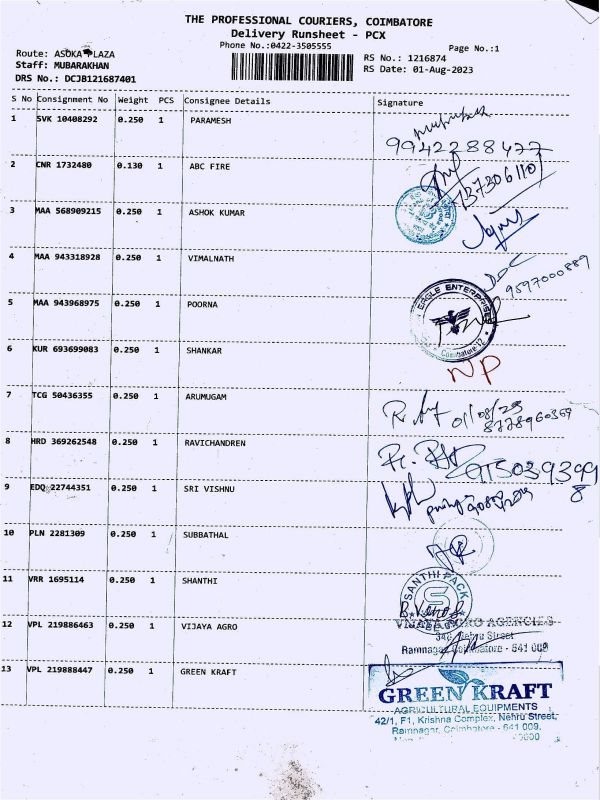 THE PROFESSIONAL COURIERS, COIMBATORE
Delivery Runsheet - PCX
Phone No.:0422-3505555
Page No.:1
Route: ASOKA PLAZA
RS No.: 1216874
Staff: MUBARAKHAN
RS Date: 01-Aug-2023
DRS No.: DCJB121687401
S No Consignment No Weight PCS Consignee Details Signature
1 SVK 10408292 0.250 1 PARAMESH
9942288477
2 CNR 1732480 0.130 1 ABC FIRE
3 MAA 568909215 0.250 1 ASHOK KUMAR
4 MAA 943318928 0.250 1 VIMALNATH
9597000889
5 MAA 943968975 0.250 1 POORNA
EAGLE ENTERPRISES
Coimbatore-12
6 KUR 693699083 0.250 1 SHANKAR
NP
7 TCG 50436355 0.250 1 ARUMUGAM
01/08/23
8778960369
8 HRD 369262548 0.250 1 RAVICHANDREN
9150393998
9 EDQ 22744351 0.250 1 SRI VISHNU
10 PLN 2281309 0.250 1 SUBBATHAL
11 VRR 1695114 0.250 1 SHANTHI
SANTHI PACK
12 VPL 219886463 0.250 1 VIJAYA AGRO
VIJAYA AGRO AGENCIES
Nehru Street
Ramnagar, Coimbatore - 641 009
13 VPL 219888447 0.250 1 GREEN KRAFT
GREEN KRAFT
AGRICULTURAL EQUIPMENTS
42/1, F1, Krishna Complex, Nehru Street,
Ramnagar, Coimbatore - 641 009.